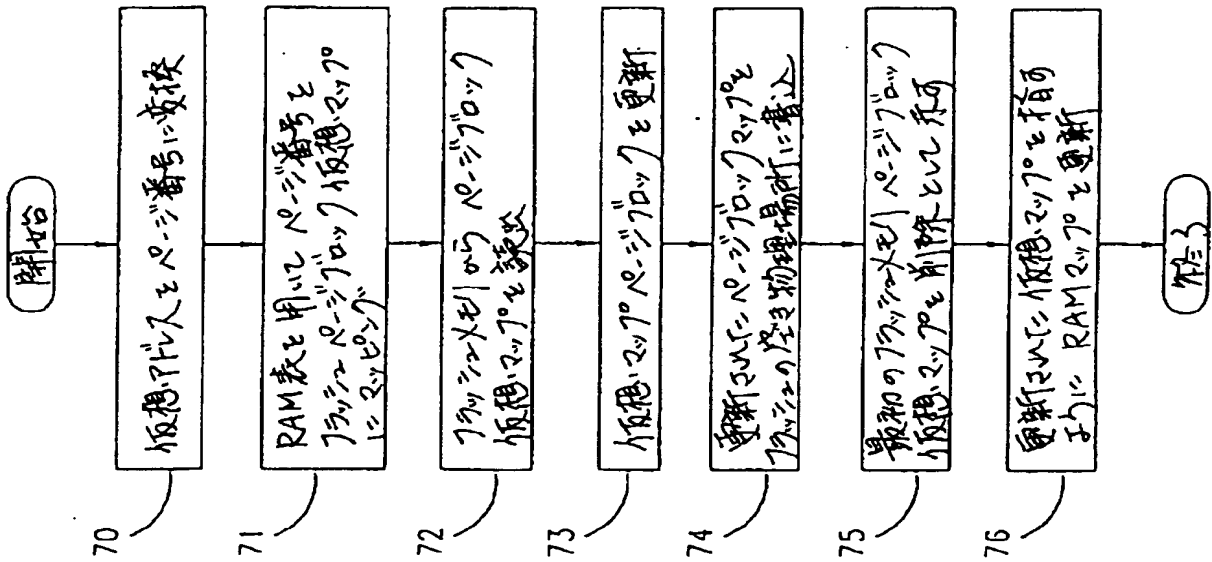 開始
70
仮想アドレスをページ番号に変換
71
RAM表を用いてページ番号を
フラッシュページブロック仮想マップ
にマッピング
72
フラッシュメモリからページブロック
仮想マップを読込
73
仮想マップページブロックを更新
74
更新されたページブロックマップを
フラッシュの空き物理場所に書込
75
最初のフラッシュメモリページブロック
仮想マップを削除として示す
76
更新された仮想マップを指す
ように RAMマップを更新
終了